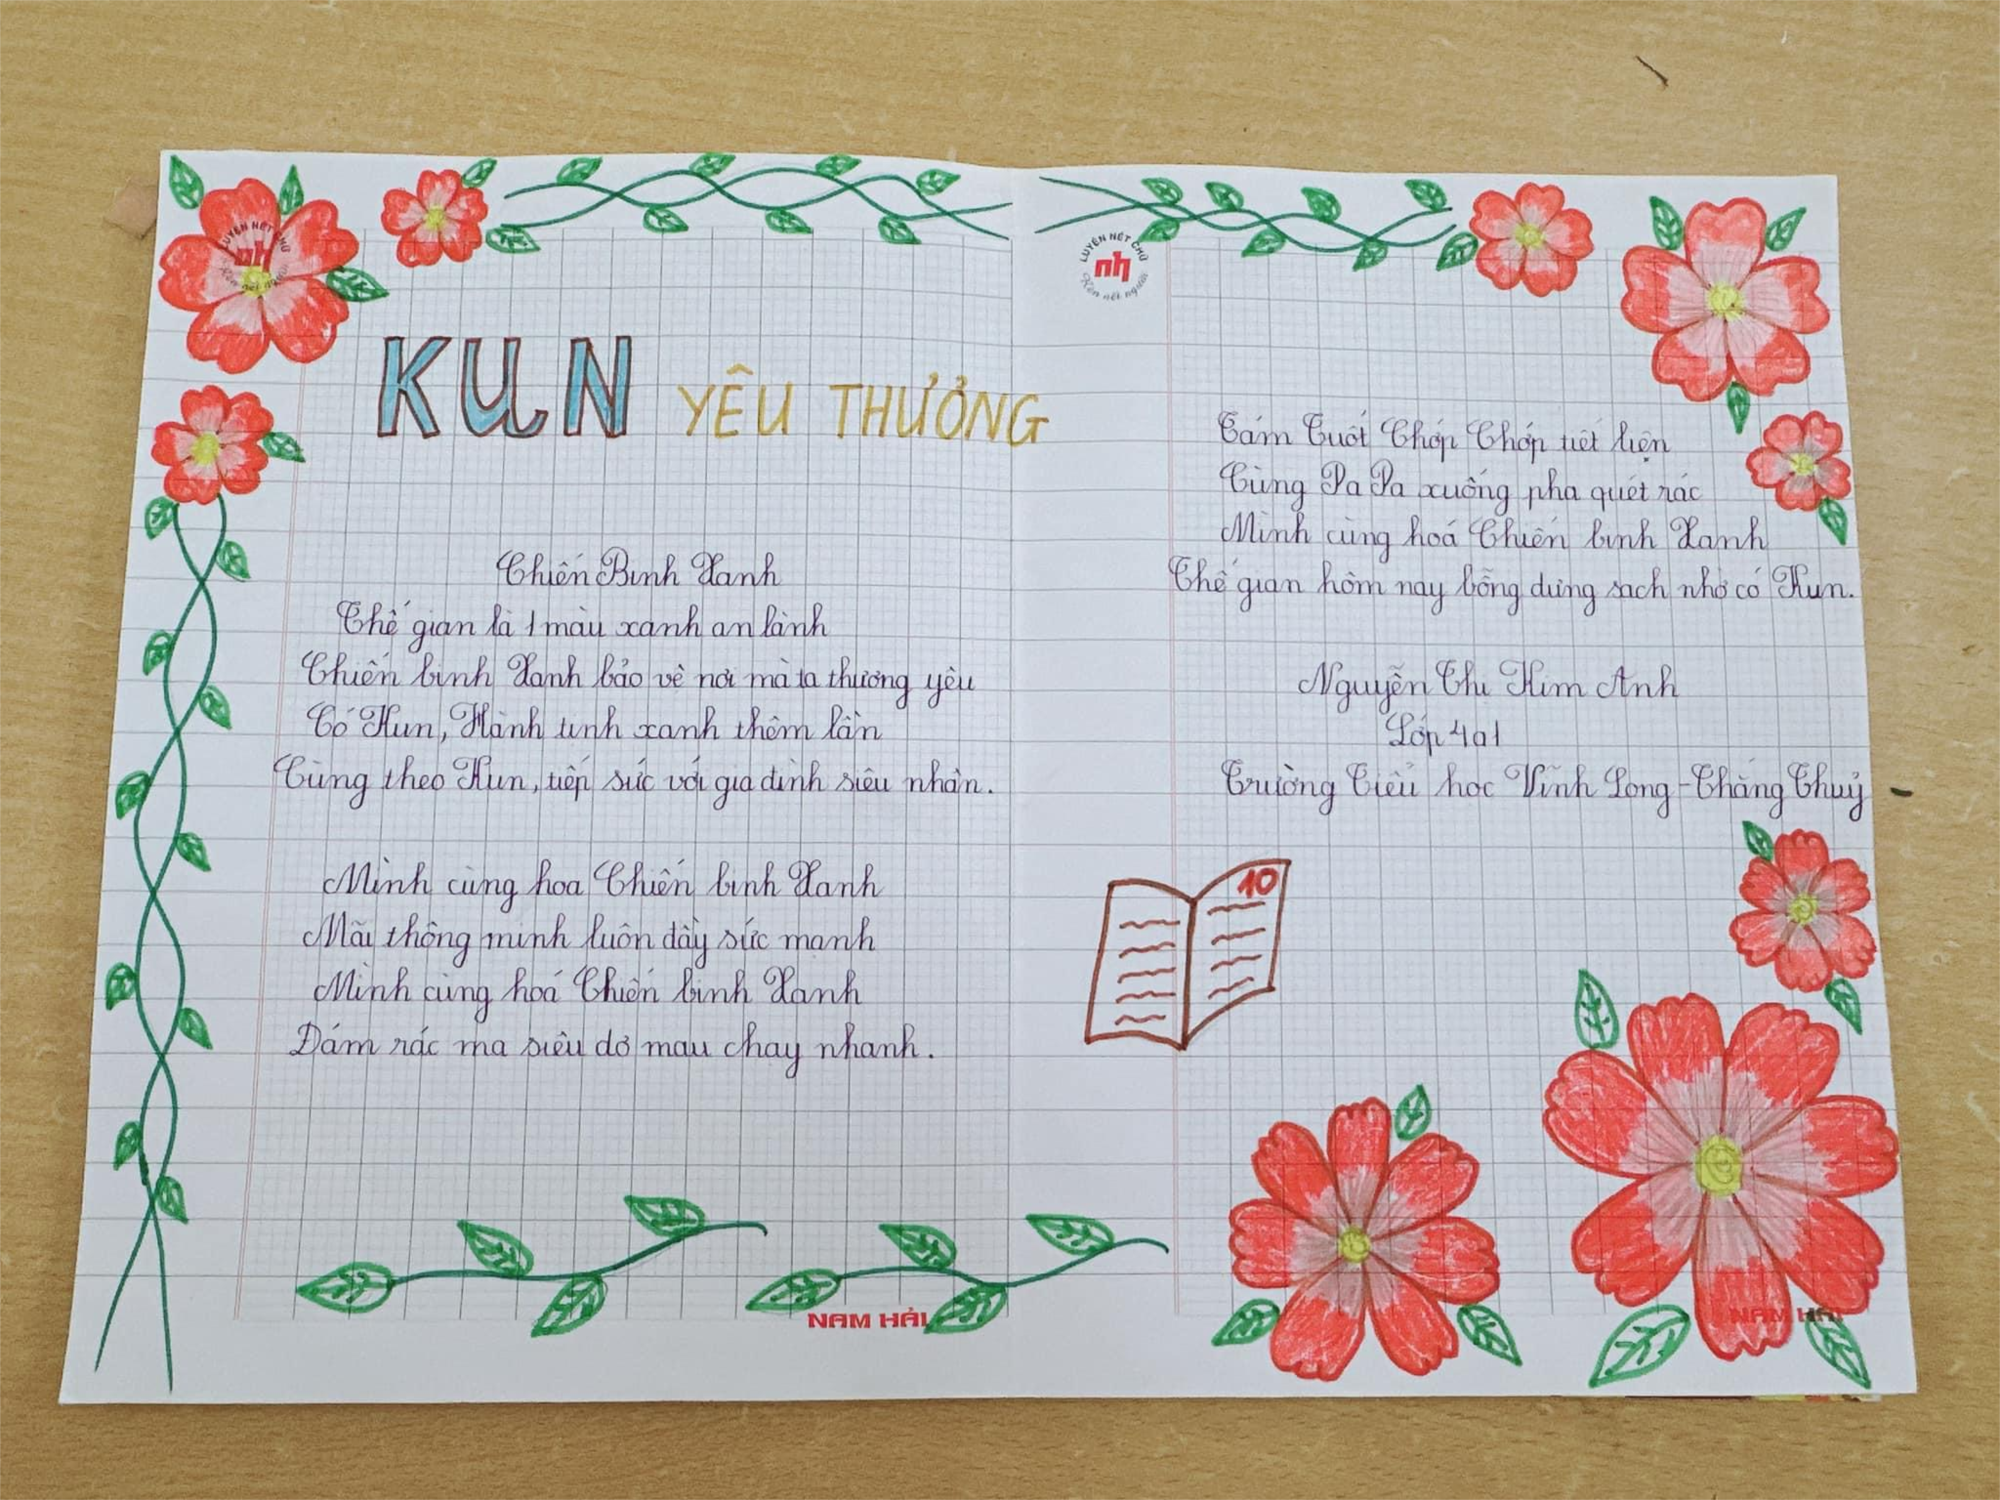 LUYỆN NÉT CHỮ
nh
Rèn nết người
KUN YÊU THƯỞNG
Chiến Binh Xanh
Thế gian là 1 màu xanh an lành
Chiến binh Xanh bảo vê nơi mà ta thương yêu
Có Kun, Hành tinh xanh thêm lần
Cùng theo Kun, tiếp sức với gia đình siêu nhân.
Mình cùng hoa Chiến binh Xanh
Mãi thông minh luôn đầy sức manh
Mình cùng hoá Chiến binh Xanh
Đám rác ma siêu dơ mau chay nhanh.
NAM HẢI
LUYỆN NÉT CHỮ
nh
Rèn nết người
Cám Tuốt Chớp Chớp tiết kiện
Cùng Pa Pa xuống pha quét rác
Mình cùng hoá Chiến binh Xanh
Thế gian hôm nay bỗng dưng sach nhờ có Kun.
Nguyễn Thị Kim Anh
Lớp 4a1
Trường Tiểu hoc Vĩnh Long - Thắng Thuỷ
10
NAM HẢI